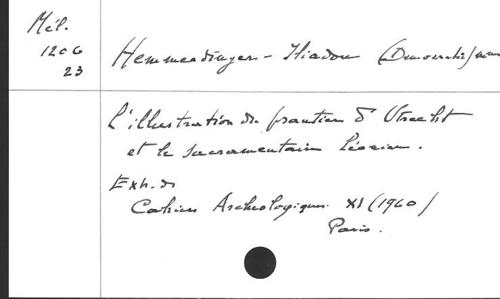 Mél.
1206
23
Hemmerdinger-Iliadou (Démocratie)
L'illustration du psautier d'Utrecht
et le sacramentaire Léonien.
Extr. de
Cahiers Archéologiques XI (1960)
Paris.